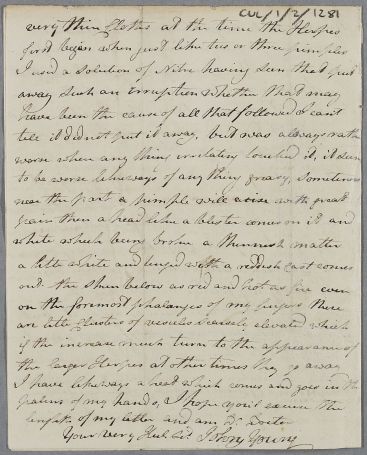 CUL/1/2/1281
very thin Clothes at the time the Herpes
first began when just like two or three pimples
I used a Solution of Nitre having seen that put
away such an irruption whether that may
have been the cause of all that followed I cant
tell it did not put it away, but was always rather
worse when any thing irritating touched it, it seem
to be worse likeways of any thing greasy, sometimes
near the part a pimple will arise with great
pain then a head like a blister comes on it and
white which being broke a thinnish matter
a little white and tinged with a reddish cast comes
out. the skin below as red and hot as fire even
on the foremost phalanges of my fingers there
are little Clusters of vesicles scarcely elevated which
if the increase much turn to the appearance of
the larger Herpes at other times they go away
I have likeways a heat which comes and goes in the
palms of my hands, I hope you'll excuse the
length of my letter and am Dr Doctor
Your very Hule Svt